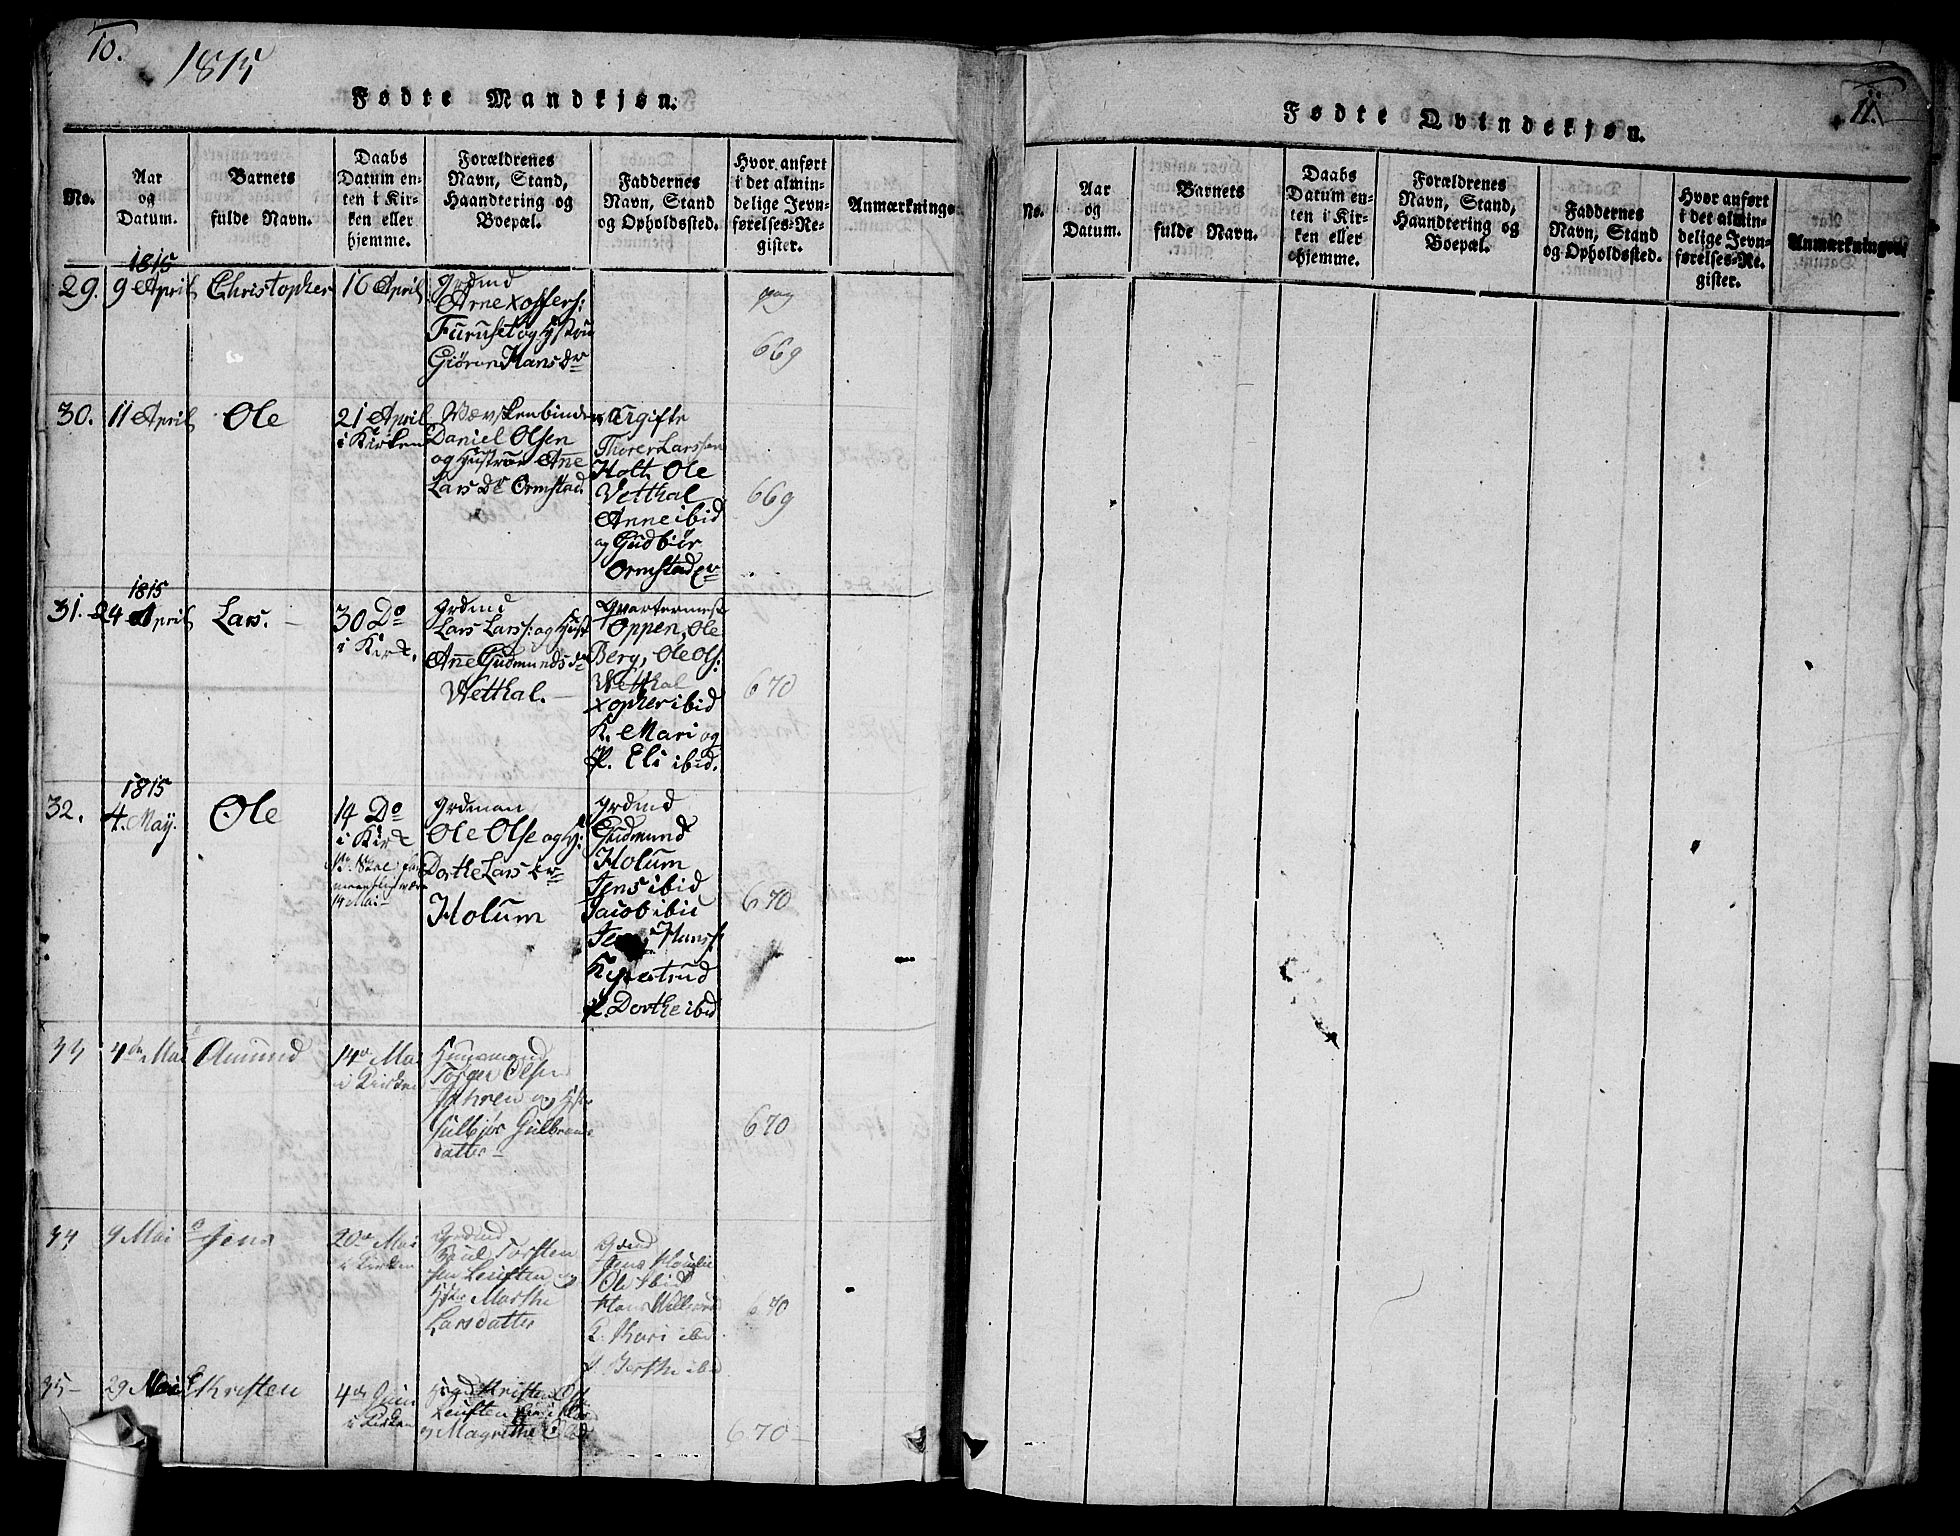 10.
1815
Fødte Mandkjøn.
No.
Aar
og
Datum.
Barnets
fulde Navn.
Daabs
Datum en-
ten i Kir-
ken eller
hjemme.
Forældrenes
Navn, Stand,
Haandtering og
Boepæl.
Faddernes
Navn, Stand
og Opholdssted.
Hvor anført
i det almin-
delige Jevn-
førelses-Re-
gister.
Anmærkninger
29.
1815
9 April
Christopher
16 April
Grdmd
Arne Xoffers:
Furuset og Hstru
Giøran Hans Dr
pag
669
30.
11 April
Ole
21 April
i Kirken
Vævskenbinder
Daniel Olsen
og Hustrue Ane
Lars Dr Ormstad
Ugifte
Thorer Larssen
Holt, Ole
Vetthal
Anne ibid
og Gudbiør
Ormstad
669
31.
1815
24 April
Lars.
30 Do
i Kirk.
Grdmd
Lars Larss: og Hust
Ane Gudmunds dr
Wetthal.
Qvartermest
Oppen, Ole
Berg, Ole Ols:
Wetthal
Xopher ibid
K. Mari og
P. Eli ibid.
670
32.
1815
4. May.
Ole
14 Do
i Kirk
14 Mai
Grdman
Ole Olse og H:
Dorthe Lars Dr
Holum
Grdmd
Gudmund
Holum
Jens ibid
Jacob ibid
Jens Hanss:
K. Giertrud
P. Dorthe ibid
670
33
4de Mai
Amund
14de Mai
i Kirken
Huusmand
Torger Olsen
Jahren og Hstr
Gulbjør Gulbrans
datter
670
34
9 Mai
Jens
20de Mai
i Kirken
Grdmd
Poul Torsten
sen Leuften og
Hstr Marthe
Larsdatter
Grdmd
Jens
Ole ibid
Hans
K. Kari ibid
P. Berthe ibid
670
35
29 Mai
Christen
4de Juni
i Kirken
Kristen
Leuften
og Magrethe
670
11.
Fødte Qvindekjøn.
No.
Aar
og
Datum.
Barnets
fulde Navn.
Daabs
Datum en-
ten i Kir-
ken eller
hjemme.
Forældrenes
Navn, Stand,
Haandtering og
Boepæl.
Faddernes
Navn, Stand
og Opholdssted.
Hvor anført
i det almin-
delige Jevn-
førelses-Re-
gister.
Anmærkninger